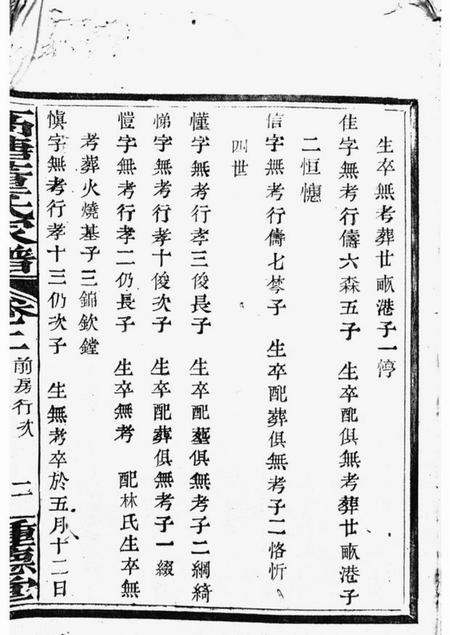 生卒無考葬廿畝港子一悙
佳字無考行儔六森五子 生卒配俱無考葬廿畝港子
二恒憓
信字無考行儔七棽子 生卒配葬俱無考子二恪忻
四世
懂字無考行孝三俊長子 生卒配葬俱無考子二綱綺
悌字無考行孝十俊次子 生卒配葬俱無考子一綴
愷字無考行孝二仍長子 生卒無考 配林氏生卒無
考葬火燒基子三錦欽鏜
慎字無考行孝十三仍次子 生無考卒於五月十二日
氏家譜 卷之二 前房行次 二